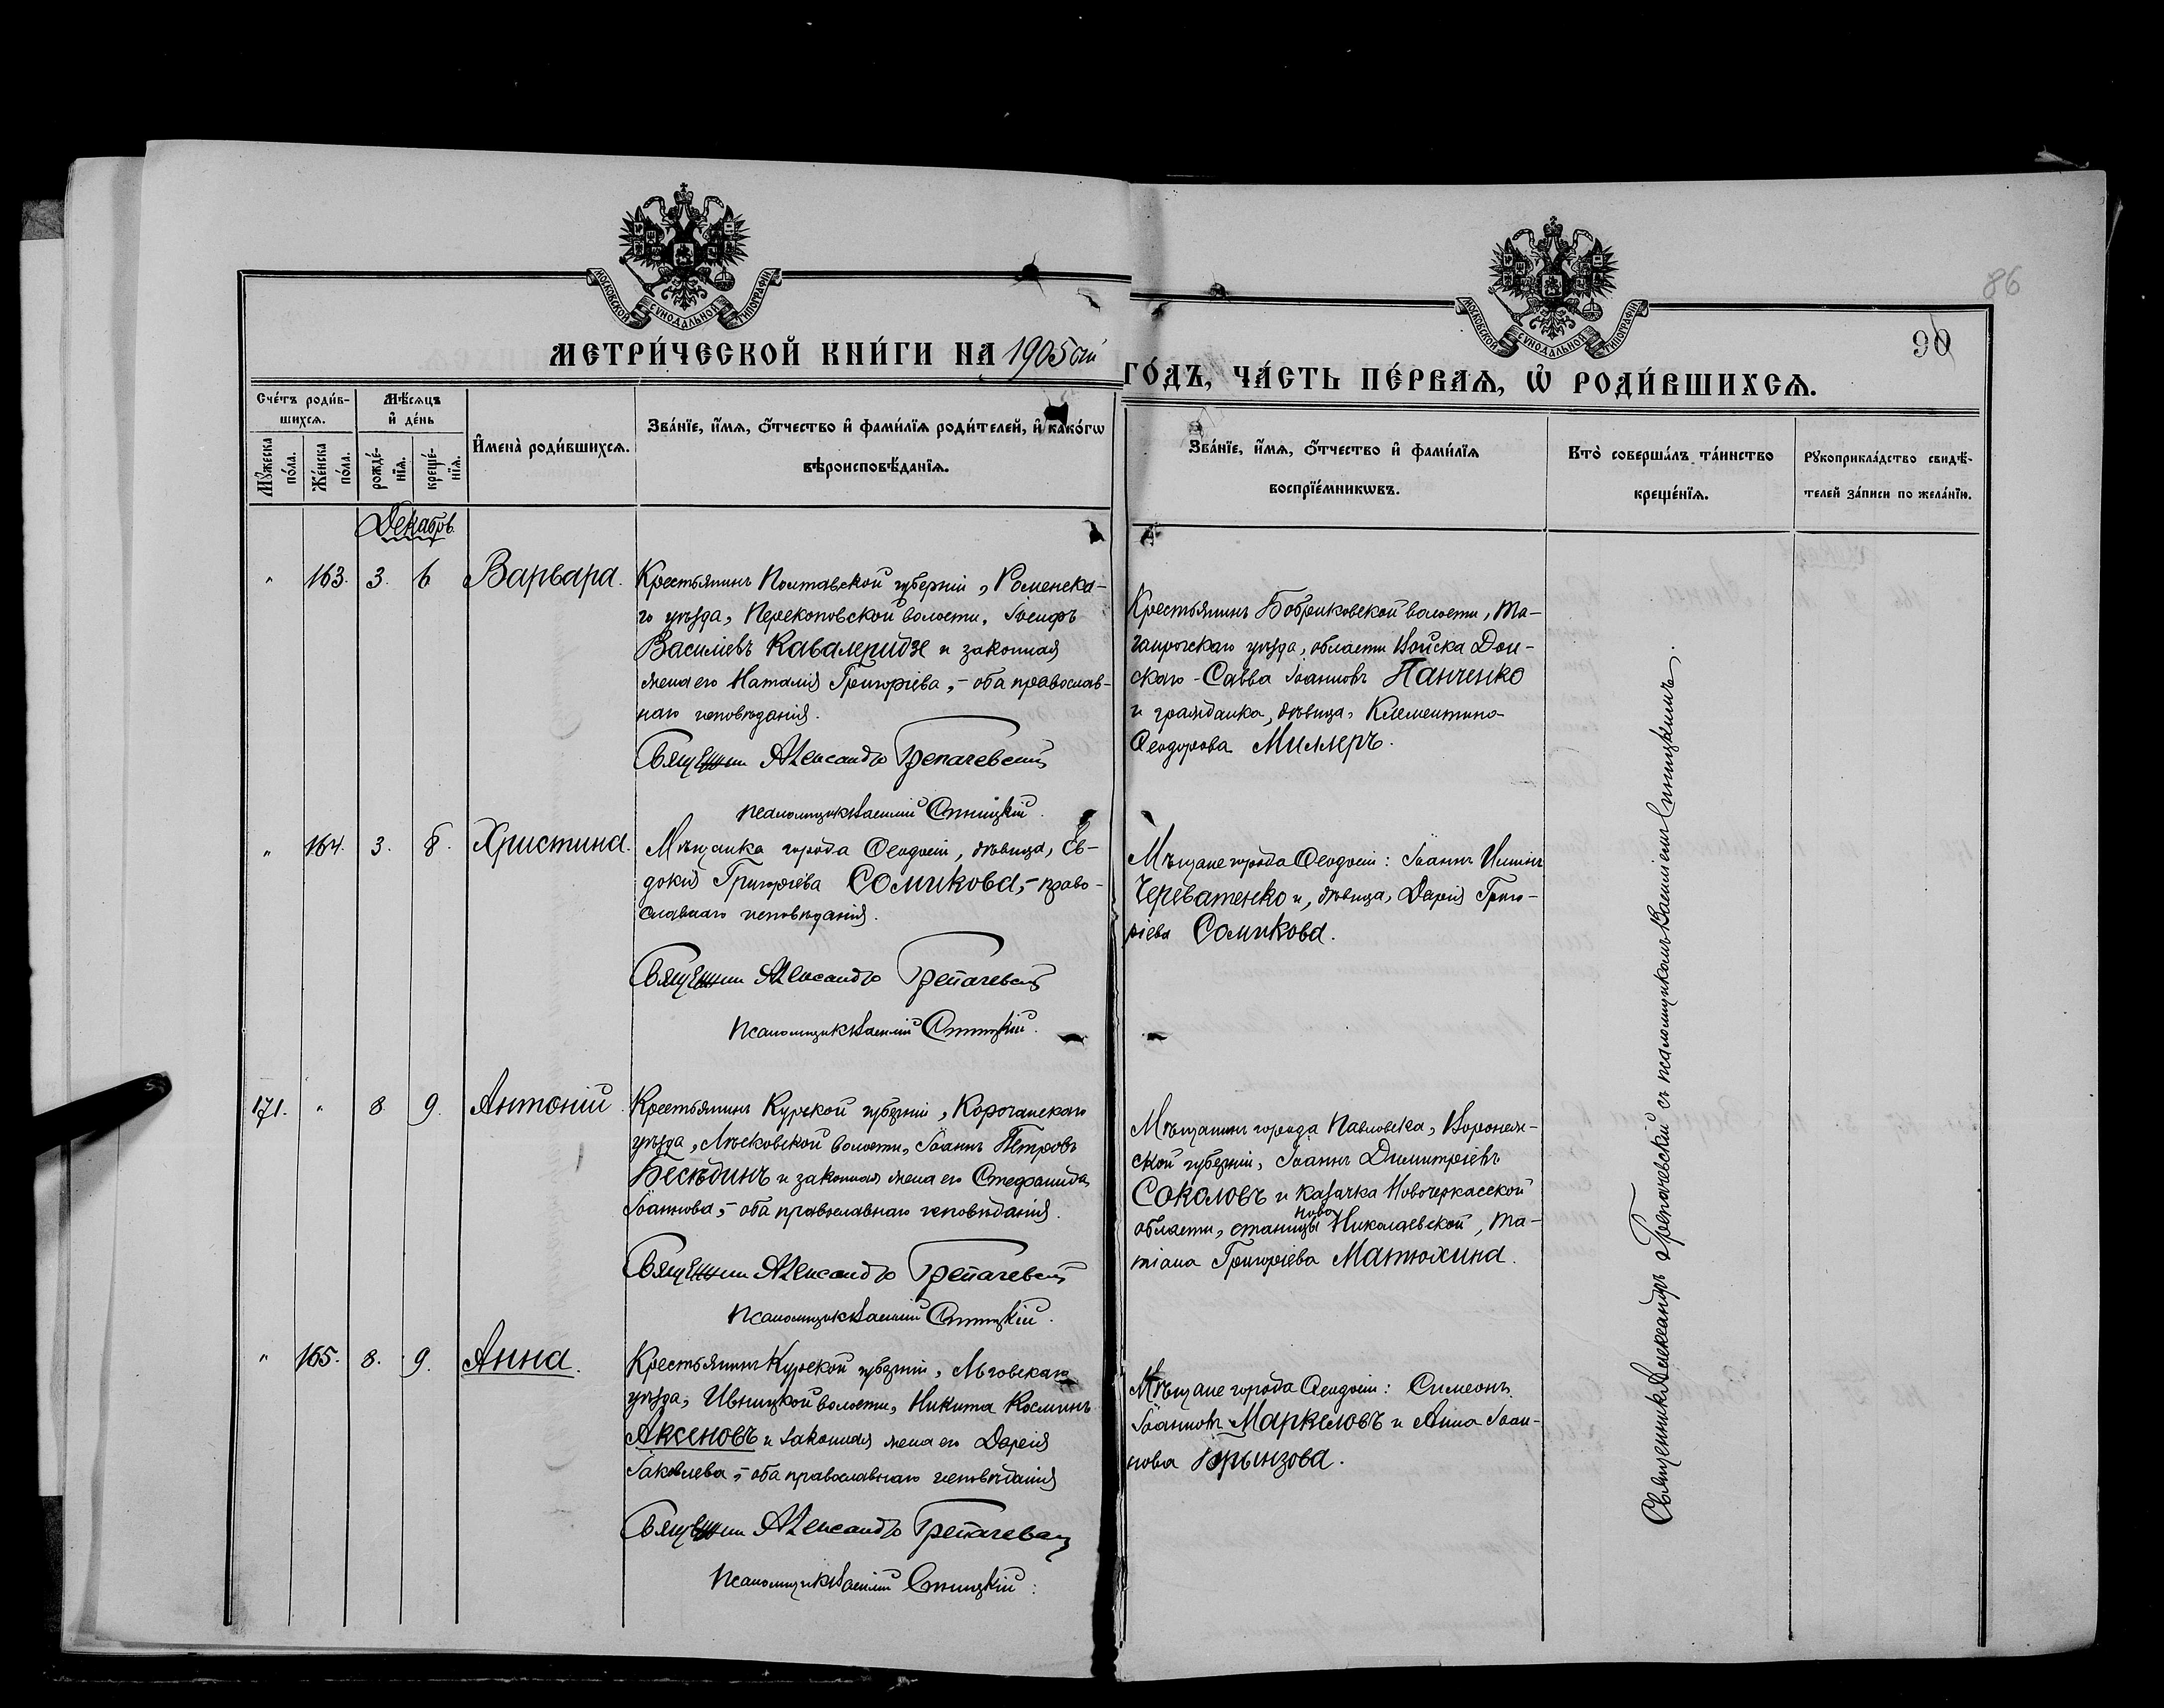 МОСКОВСКОЙ СѴНОДАЛЬНОЙ ТИПОГРАФІИ
МОСКОВСКОЙ СѴНОДАЛЬНОЙ ТИПОГРАФІИ
86
90
МЕТРИ́ЧЕСКОЙ КНИ́ГИ НА 1905 ый ГО́ДЪ, ЧА́СТЬ ПЕ́РВАѦ, Ѡ҆ РОДИ́ВШИХСѦ.
Сче́тъ роди́в-
шихсѧ.
Мꙋ́жеска по́ла.
Же́нска по́ла.
Мѣ́сѧцъ
и҆ де́нь
рожде́-
нїѧ.
креще́-
нїѧ.
И҆мена̀ роди́вшихсѧ.
Зва́нїе, и҆́мѧ, ѻ҆́тчество и҆ фами́лїѧ роди́телей, и҆ како́гѡ
вѣроисповѣ́данїѧ.
Зва́нїе, и҆́мѧ, ѻ҆́тчество и҆ фами́лїѧ
воспрїе́мникѡвъ.
Кто̀ соверша́лъ та́инство
креще́нїѧ.
Рꙋкоприкла́дство свидѣ́-
телей за́писи по жела́нїю.
Декабрь
" 163. 3. 6 Варвара.
Крестьянинъ Полтавской губерніи, Роменска-
го уѣзда, Перекоповской волости, Іосифъ
Василіевъ Кавалеридзе и законная
жена его Наталія Григоріева, - оба православ-
наго исповѣданія.
Священник Александръ Трепачевскій
псаломщикъ Василій Синицкій.
Крестьянинъ Бобриковской волости, Та-
ганрогскаго уѣзда, области Войска Дон-
скаго - Савва Іоанновъ Панченко
и гражданка, дѣвица, Клементина
Ѳеодорова Миллеръ.
" 164. 3. 8. Христина.
Мѣщанка города Ѳеодосіи, дѣвица, Ев-
докія Григоріева Сомикова, - право-
славнаго исповѣданія.
Священник Александръ Трепачевскій
Псаломщикъ Василій Синицкій.
Мѣщане города Ѳеодосіи: Іоаннъ
Череватенко и, дѣвица, Дарія Григо-
ріева Сомикова.
171. " 8. 9. Антоній.
Крестьянинъ Курской губерніи, Корочанскаго
уѣзда, Лѣсковской волости, Іоаннъ Петровъ
Бесѣдинъ и законная жена его Стефанида
Іоаннова, - оба православнаго исповѣданія.
Священник Александръ Трепачевскій
Псаломщикъ Василій Синицкій.
Мѣщанинъ города Павловска, Воронеж-
ской губерніи, Іоаннъ Димитріевъ
Соколовъ и казачка Новочеркасской
области, станицы Ново Николаевской, Та-
тіана Григоріева Матюхина.
" 165. 8. 9. Анна.
Крестьянинъ Курской губерніи, Льговскаго
уѣзда, Ивницкой волости, Никита Косминъ
Аксеновъ и законная жена его Дарія
Іаковлева, - оба православнаго исповѣданія
Священник Александръ Трепачевскій
Псаломщикъ Василій Синицкій.
Мѣщане города Ѳеодосіи: Симеонъ
Іоанновъ Маркеловъ и Анна Іоан-
нова Брынзова.
Священникъ Александръ Трепачевскій съ псаломщикомъ Василіемъ Синицкимъ.